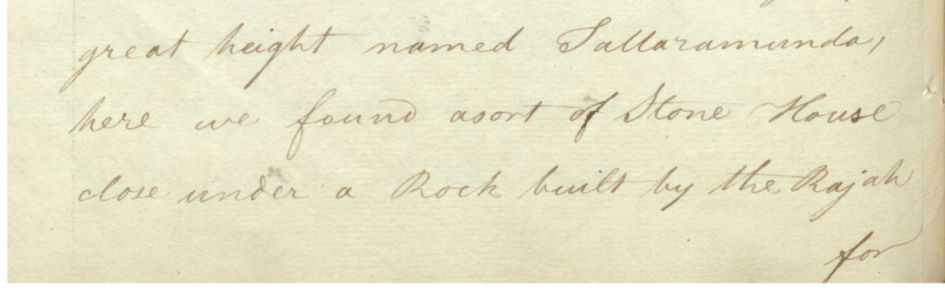 great height named Sallaramunda,
here we found asort of Stone House
close under a Rock built by the Rajah
for